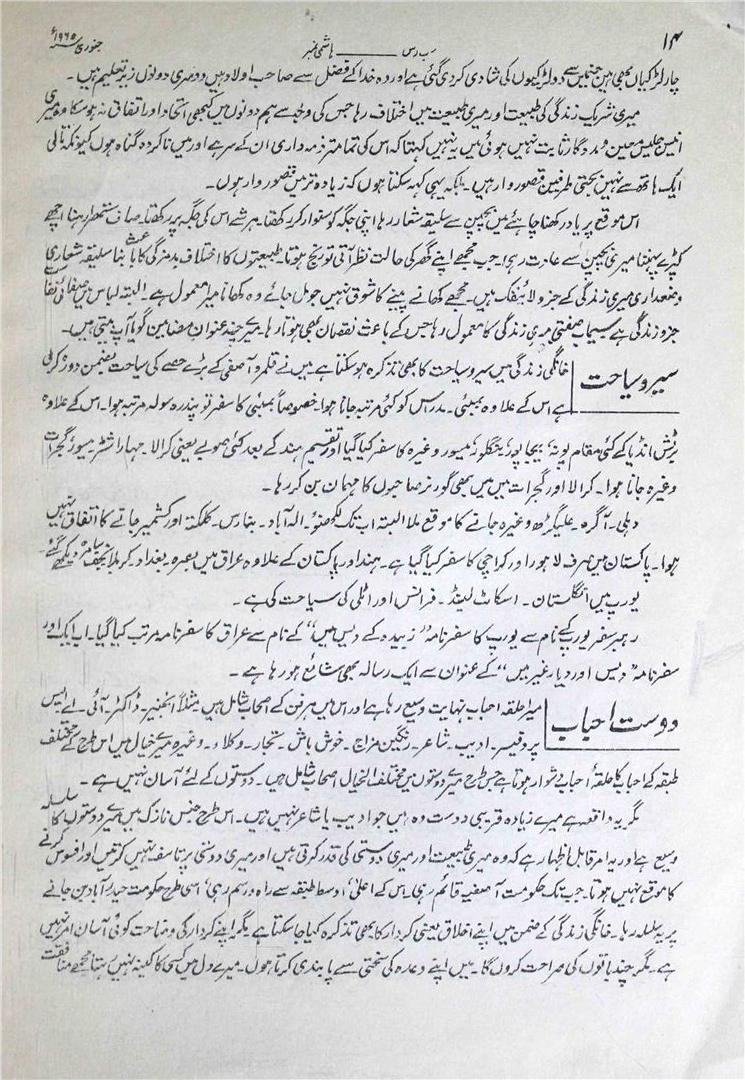 ۱۴ سب رس ــــــ ہاشمی نمبر جنوری ۱۹۶۵ء
چار لڑکیاں بھی ہیں جنمیں سے دو لڑکیوں کی شادی کردی گئی ہے اور وہ خدا کے فضل سے صاحب اولاد ہیں دوسری دونوں زیر تعلیم ہیں ۔
میری شریک زندگی کی طبیعت اور میری طبیعت میں اختلاف رہا جس کی وجہ سے ہم دونوں میں کبھی اتحاد اور اتفاق نہ ہو سکا وہ میری
انیس جلیس معین و مددگار ثابت نہیں ہوئی ہیں یہ نہیں کہتا کہ اس کی تمامتر ذمہ داری ان کے سر ہے اور میں ناکردہ گناہ ہوں کیونکہ تالی
ایک ہاتھ سے نہیں بجتی طرفین قصوروار ہیں ۔ بلکہ یہی کہہ سکتا ہوں کہ زیادہ تر میں قصوروار ہوں ۔
اس موقع پر یاد رکھنا چاہئے میں بچپن سے سلیقہ شعار رہا اپنی جگہ کو سنوار کر رکھتا ۔ ہر شے اس کی جگہ پر رکھتا ۔ صاف ستھرا رہنا اچھے
کپڑے پہننا میری بچپن سے عادت رہی ۔ جب مجھے اپنے گھر کی حالت نظر آتی تو رنج ہوتا ۔ طبیعتوں کا اختلاف بدمزگی کا باعث بنا سلیقہ شعاری
وضعداری میری زندگی کے جزو لاینفک ہیں ۔ مجھے کھانے پینے کا شوق نہیں جو مل جائے وہ کھانا میرا معمول ہے ۔ البتہ لباس میں صفائی نفاست
جزو زندگی ہے ۔ سیماب صفتی میری زندگی کا معمول رہا جس کے باعث نقصان بھی ہوتا رہا ۔ میرے چند عنوان مضامین گویا آپ بیتی ہیں ۔
سیر و سیاحت
خانگی زندگی میں سیر و سیاحت کا بھی تذکرہ ہو سکتا ہے ۔ میں نے قلمرو آصفی کے بڑے حصے کی سیاحت بضمن دورہ کرلی
ہے اس کے علاوہ بمبئی ۔ مدراس کو کئی مرتبہ جانا ہوا ۔ خصوصاً بمبئی کا سفر تو پندرہ سولہ مرتبہ ہوا ۔ اس کے علاوہ
برٹش انڈیا کے کئی مقام پونہ، بیجاپور، بنگلور، میسور وغیرہ کا سفر کیا گیا اور تقسیم ہند کے بعد کئی صوبے یعنی کرالا ۔ مہاراشٹر ۔ میسور، گجرات
وغیرہ جانا ہوا ۔ کرالا اور گجرات میں میں بھی گورنر صاحبوں کا مہمان بن کر رہا ۔
دہلی ۔ آگرہ ۔ علیگڑھ وغیرہ جانے کا موقع ملا البتہ اب تک لکھنؤ ۔ الہ آباد ۔ بنارس ۔ کلکتہ اور کشمیر جانے کا اتفاق نہیں
ہوا ۔ پاکستان میں صرف لاہور اور کراچی کا سفر کیا گیا ہے ۔ ہند اور پاکستان کے علاوہ عراق میں بصرہ، بغداد، کربلا نجف سامرہ دیکھے گئے ۔
یورپ میں انگلستان ۔ اسکاٹ لینڈ ۔ فرانس اور اٹلی کی سیاحت کی ہے ۔
رہبر سفر یورپ کے نام سے یورپ کا سفرنامہ "زبیدہ کے دیس میں" کے نام سے عراق کا سفرنامہ مرتب کیا گیا ۔ اب ایک اور
سفرنامہ "دیس اور دیار غیر میں" کے عنوان سے ایک رسالہ بھی شائع ہو رہا ہے ۔
دوست احباب
میرا حلقہ احباب نہایت وسیع رہا ہے اور اس میں ہر فن کے اصحاب شامل ہیں مثلاً انجنیر ۔ ڈاکٹر ۔ آئی ۔ اے ایس
پروفیسر ۔ ادیب ۔ شاعر ۔ رنگین مزاج ۔ خوش باش ۔ تجار ۔ وکلاء ۔ وغیرہ میرے خیال میں اس طرح کے مختلف
طبقہ کے احباب کا حلقہ احباب دشوار ہوتا ہے جس طرح میرے دوستوں میں مختلف الخیال اصحاب شامل ہیں ۔ دوستوں کے لئے آسان نہیں ہے ۔
مگر یہ واقعہ ہے میرے زیادہ قریبی دوست وہ ہیں جو ادیب یا شاعر نہیں ہیں ۔ اس طرح جنس نازک میں میرے دوستوں کا سلسلہ
وسیع ہے اور یہ امر قابل اظہار ہے کہ وہ میری طبیعت اور میری دوستی کی قدر کرتی ہیں اور میری دوستی پر تاسف نہیں کرتیں اور افسوس کرنے
کا موقع نہیں ہوتا ۔ جب تک حکومت آصفیہ قائم رہی اس کے اعلیٰ، اوسط طبقہ سے راہ و رسم رہی، اسی طرح حکومت حیدرآباد بن جانے
پر یہ سلسلہ رہا ۔ خانگی زندگی کے ضمن میں اپنے اخلاق یعنی کردار کا بھی تذکرہ کیا جا سکتا ہے مگر اپنے کردار کی وضاحت کوئی آسان امر نہیں
ہے ۔ مگر چند باتوں کی صراحت کروں گا ۔ میں اپنے وعدہ کی سختی سے پابندی کرتا ہوں ۔ میرے دل میں کسی کا کینہ نہیں رہتا مجھے منافقت